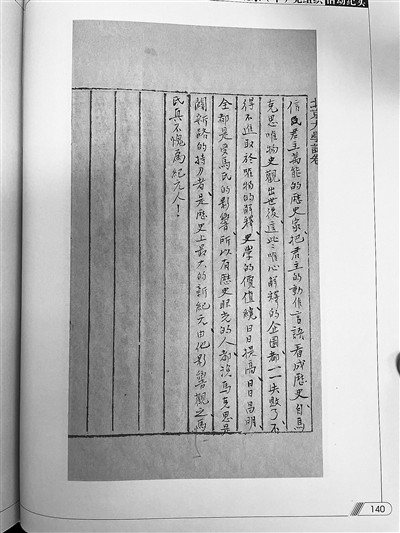 活动纪实
北京大學試卷
信民君主萬能的歷史家把君主的動作言語看成歷史自馬
克思唯物史觀出世後這些唯心解釋的企圖都一一失敗了不
得不進取於唯物的解釋史學的價值纔日日提高日日昌明
全都是受馬氏的影響所以有歷史眼光的人都說馬克思是
開新路的持刀者是歷史上最大的新紀元由他影響觀之馬
氏真不愧為紀元人！
140